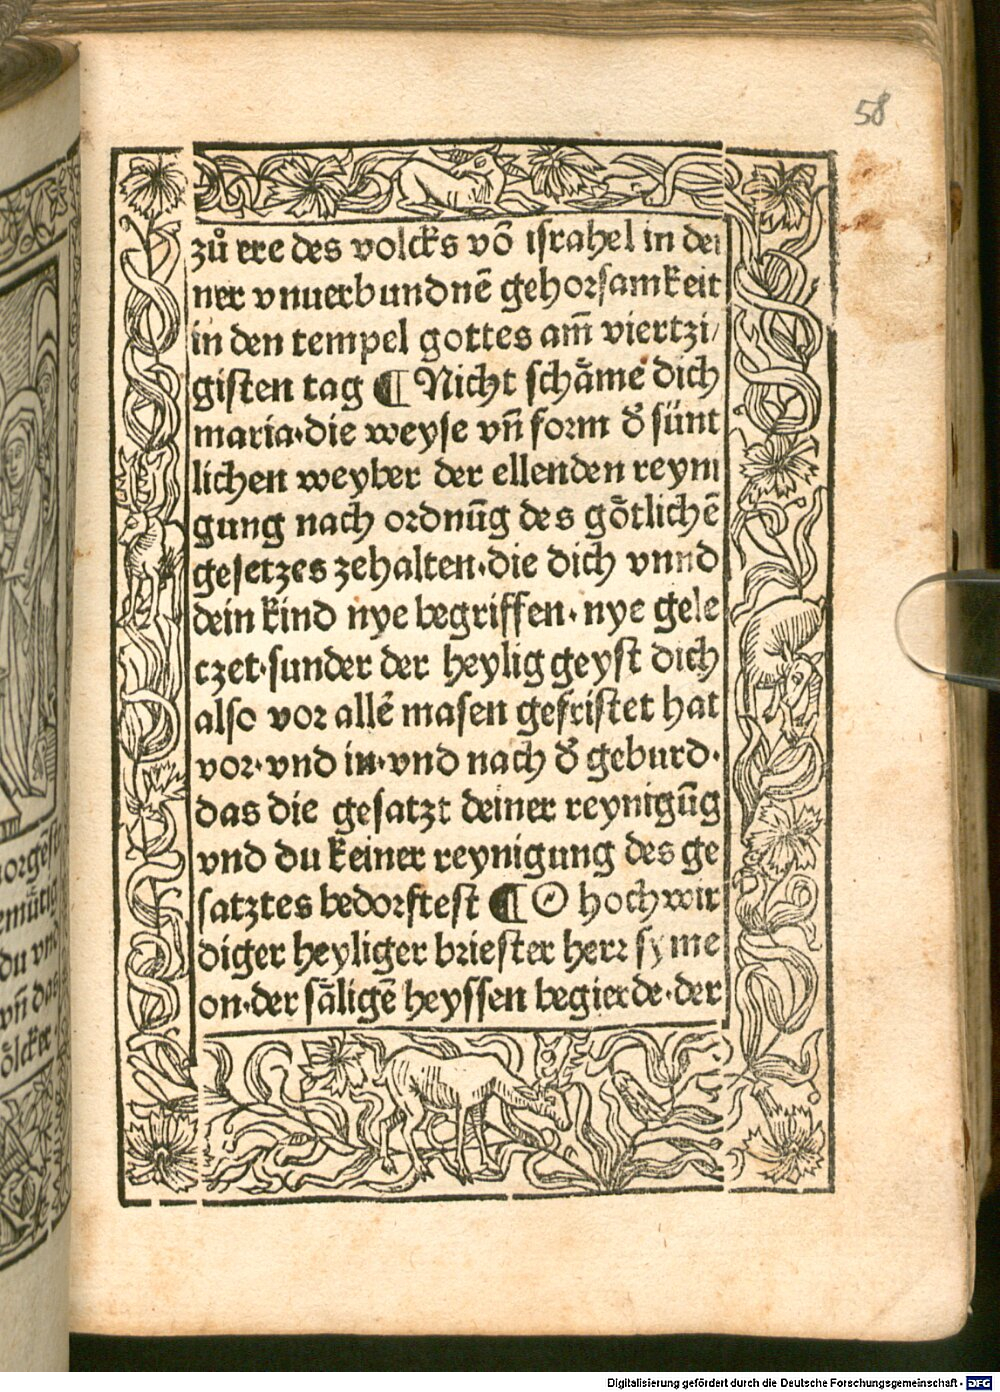 58
zů ere des volcks võ israhel in dei
ner vnuerbundnẽ gehorsamkeit
in den tempel gottes am̃ viertzi/
gisten tag ¶ Nicht schäme dich
maria·die weyse vñ form d̕ sünt
lichen weyber der ellenden reyni
gung nach ordnũg des gȫtlichẽ
gesetzes zehalten·die dich vnnd
dein kind nye begriffen·nye gele
czet·sunder der heylig geyst dich
also vor allẽ masen gefristet hat
vor·vnd in·vnd nach d̕ geburd·
das die gesatzt deiner reynigũg
vnd du keiner reynigung des ge
satztes bedorftest ¶ O hochwir
diger heyliger briester herr syme
on·der säligẽ heyssen begierde·der
du vnd
vñ das
Digitalisierung gefördert durch die Deutsche Forschungsgemeinschaft - DFG